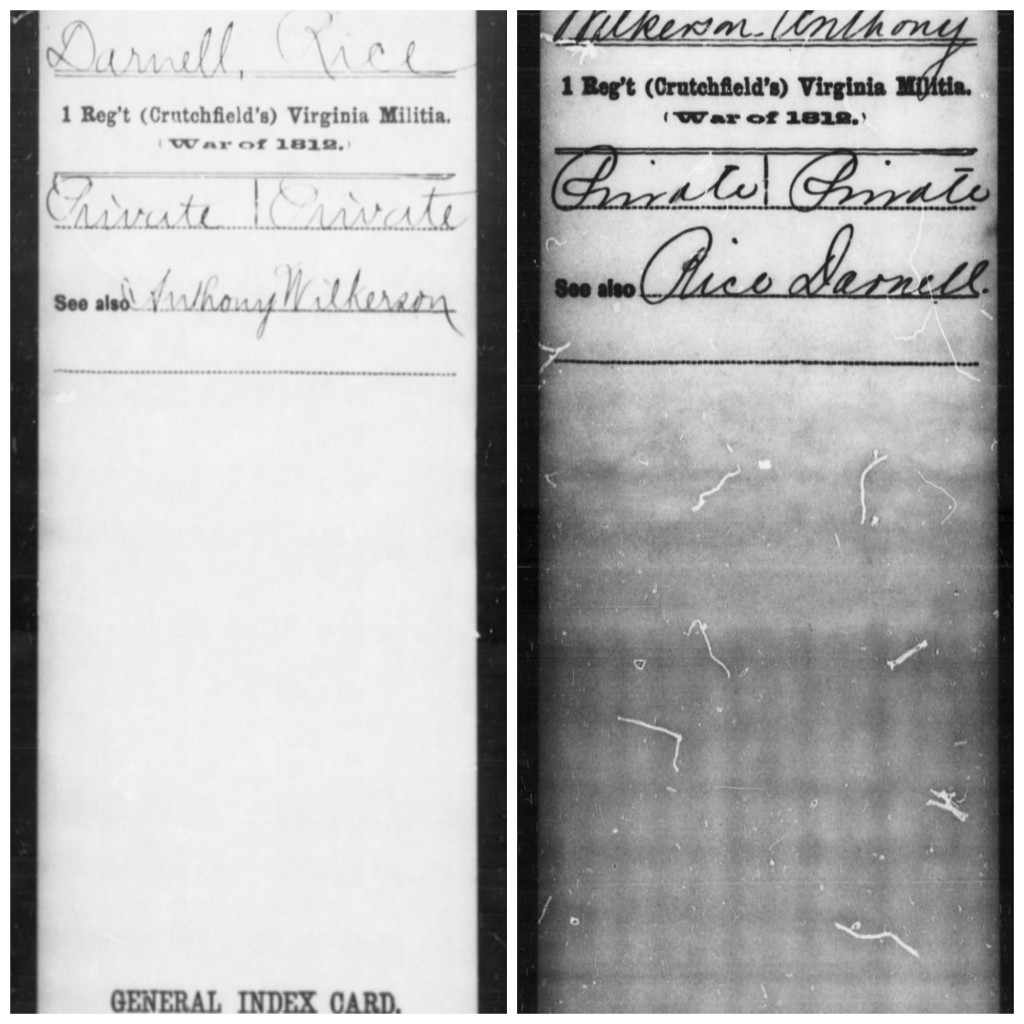 Darnell, Rice
1 Reg't (Crutchfield's) Virginia Militia.
(War of 1812.)
Private | Private
See also Anthony Wilkerson
GENERAL INDEX CARD.
Wilkerson Anthony
1 Reg't (Crutchfield's) Virginia Militia.
(War of 1812.)
Private | Private
See also Rice Darnell.